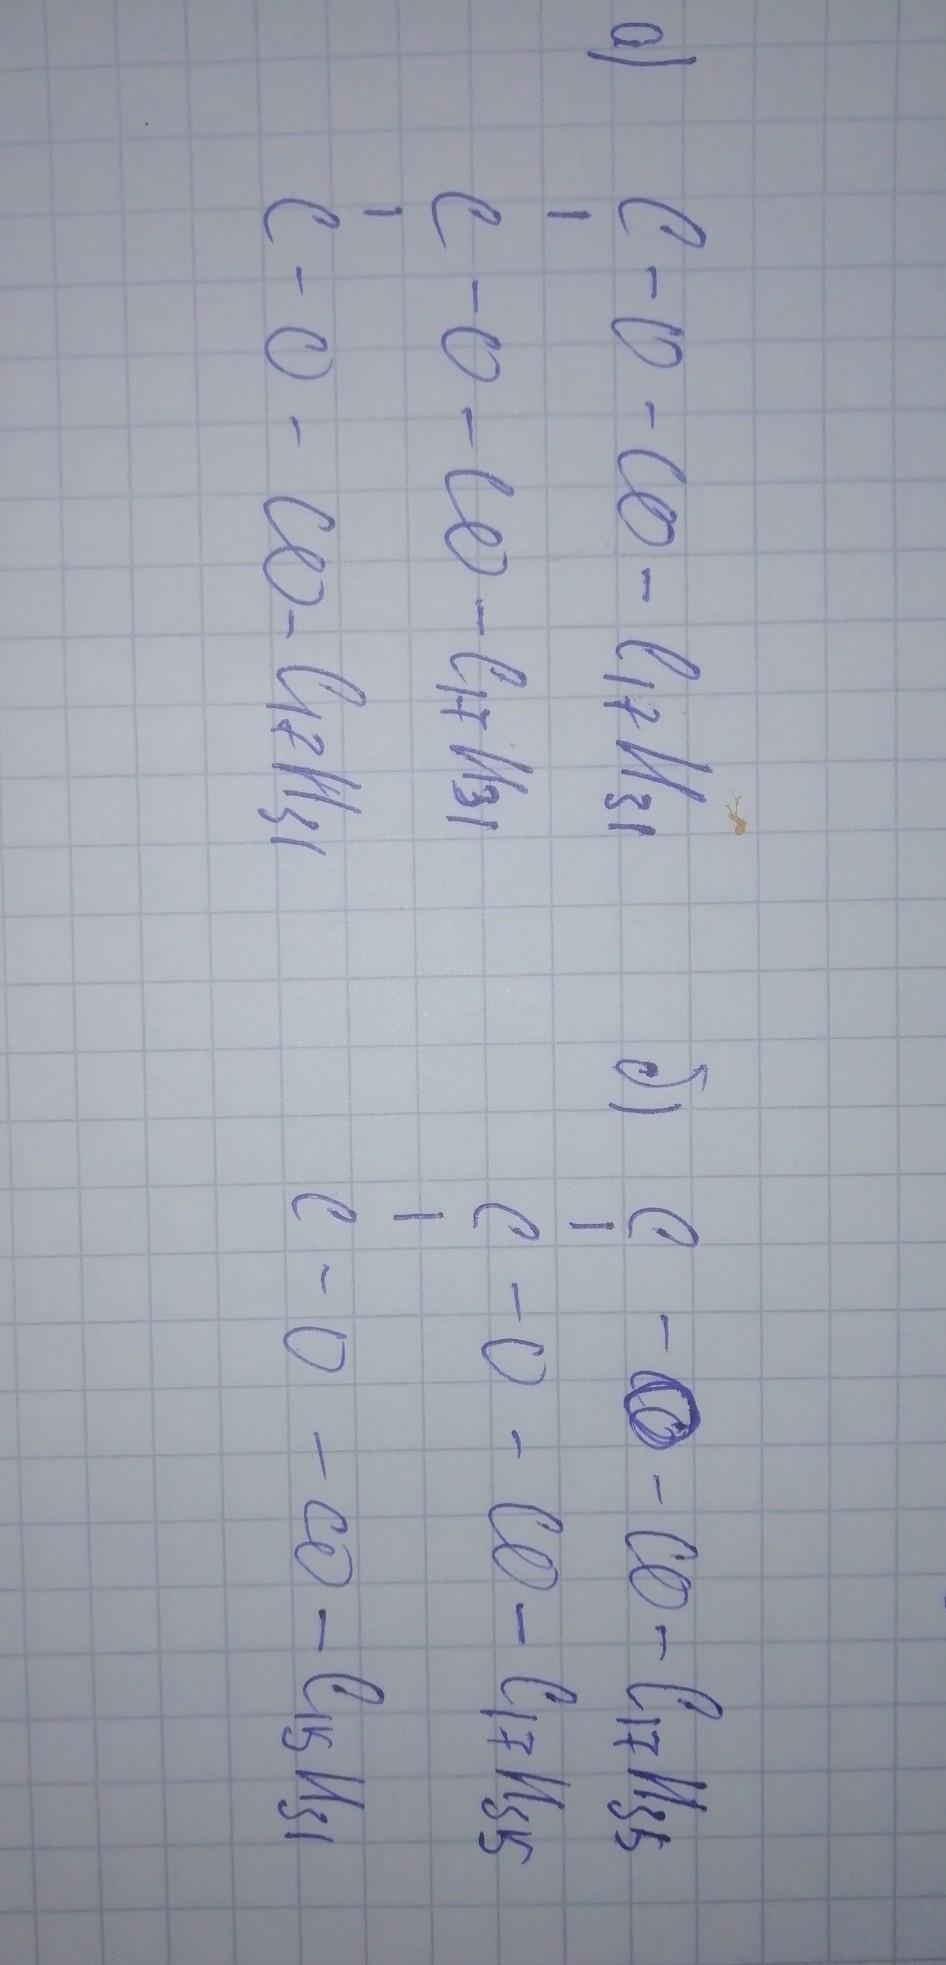 а) C - O - CO - C17H31
C - O - CO - C17H31
C - O - CO - C17H31
б) C - O - CO - C17H35
C - O - CO - C17H35
C - O - CO - C15H31